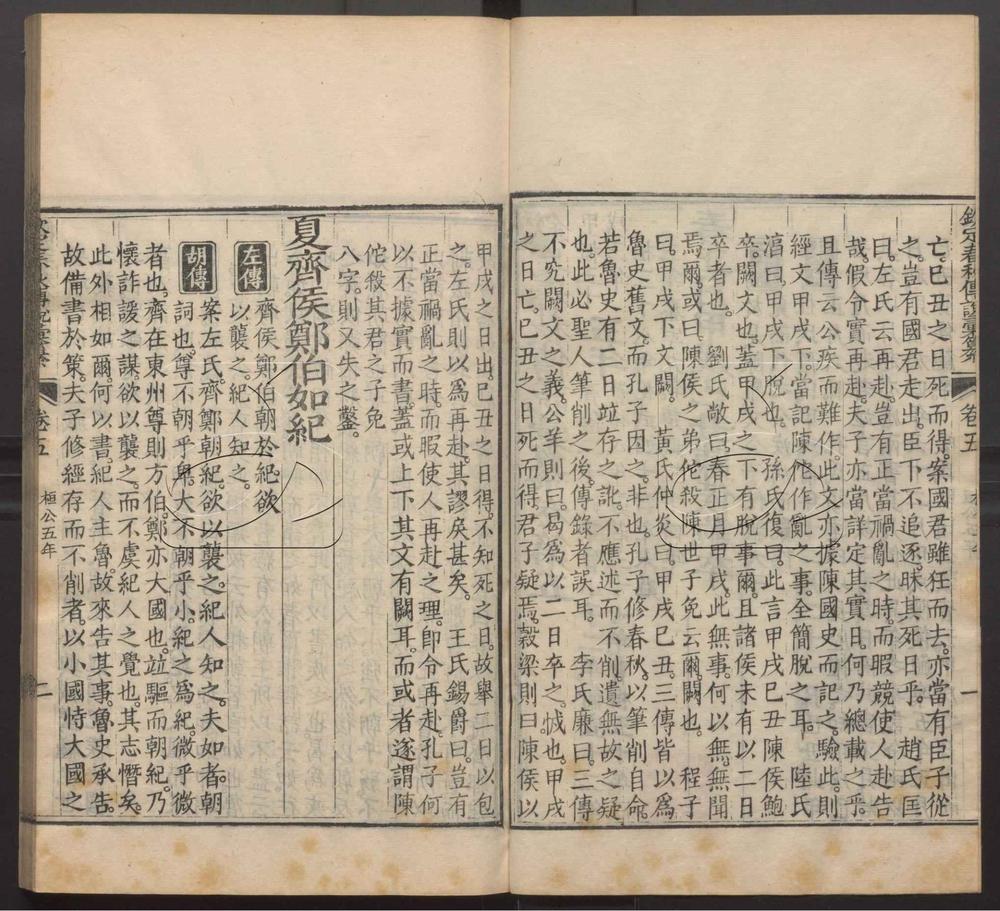 欽定春秋傳說彙纂 卷五 一
亡己丑之日死而得案國君雖狂而去亦當有臣子從
之豈有國君走出臣下不追逐昧其死日乎 趙氏匡
曰左氏云再赴豈有正當禍亂之時而暇競使人赴告
哉假令實再赴夫子亦當詳定其實日何乃總載之乎
且傳云公疾而難作此文亦據陳國史而記之驗此則
經文甲戌下當記陳佗作亂之事全簡脫之耳 陸氏
淳曰甲戌下脫也 孫氏復曰此言甲戌己丑陳侯鮑
卒闕文也蓋甲戌之下有脫事爾且諸侯未有以二日
卒者也 劉氏敞曰春正月甲戌此無事何以無無聞
焉爾或曰陳侯之弟佗殺陳世子免云爾闕也 程子
曰甲戌下文闕 黃氏仲炎曰甲戌己丑三傳皆以爲
魯史舊文而孔子因之非也孔子修春秋以筆削自命
若魯史有二日竝存之訛不應述而不削遺無故之疑
也此必聖人筆削之後傳錄者誤耳 李氏廉曰三傳
不究闕文之義公羊則曰曷爲以二日卒之怴也甲戌
之日亡己丑之日死而得君子疑焉穀梁則曰陳侯以
甲戌之日出己丑之日得不知死之日故舉二日以包
之左氏則以爲再赴其謬矣甚矣 王氏錫爵曰豈有
正當禍亂之時而暇使人再赴之理卽令再赴孔子何
以不據實而書蓋或上下其文有闕耳而或者遂謂陳
佗殺其君之子免
八字則又失之鑿
夏齊侯鄭伯如紀
左傳 齊侯鄭伯朝於紀欲
以襲之紀人知之
胡傳 案左氏齊鄭朝紀欲以襲之紀人知之夫如者朝
詞也尊不朝乎卑大不朝乎小紀之爲紀微乎微
者也齊在東州尊則方伯鄭亦大國也竝驅而朝紀乃
懷詐諼之謀欲以襲之而不虞紀人之覺也其志憯矣
此外相如爾何以書紀人主魯故來告其事魯史承告
故備書於策夫子修經存而不削者以小國恃大國之
卷五 桓公五年 二